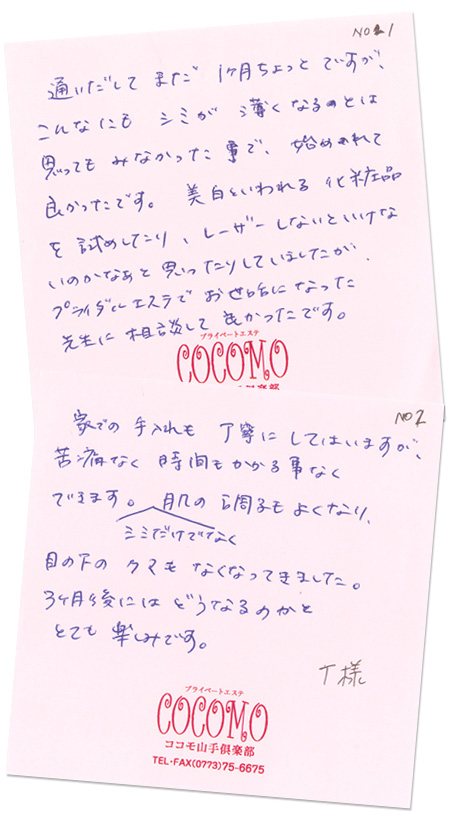 NO 1
通いだして まだ 1ヶ月ちょっと ですが、
こんなにも シミが 薄くなるのとは
思っても みなかった事で、始められて
良かったです。 美白といわれる 化粧品
を 試めしたり、レーザーしないといけな
いのかなぁと 思ったりしていましたが、
ブライダルエステで お世話になった
先生に 相談して 良かったです。
プライベートエステ
COCOMO
NO 2
家での 手入れも 丁寧に してはいますが、
苦痛なく 時間も かかる事なく
できます。 肌の 調子も よくなり、
シミだけでなく
目の下の クマも なくなってきました。
3ヶ月後には どうなるのかと
とても 楽しみです。
T様
プライベートエステ
COCOMO
ココモ山手倶楽部
TEL・FAX(0773)75-6675